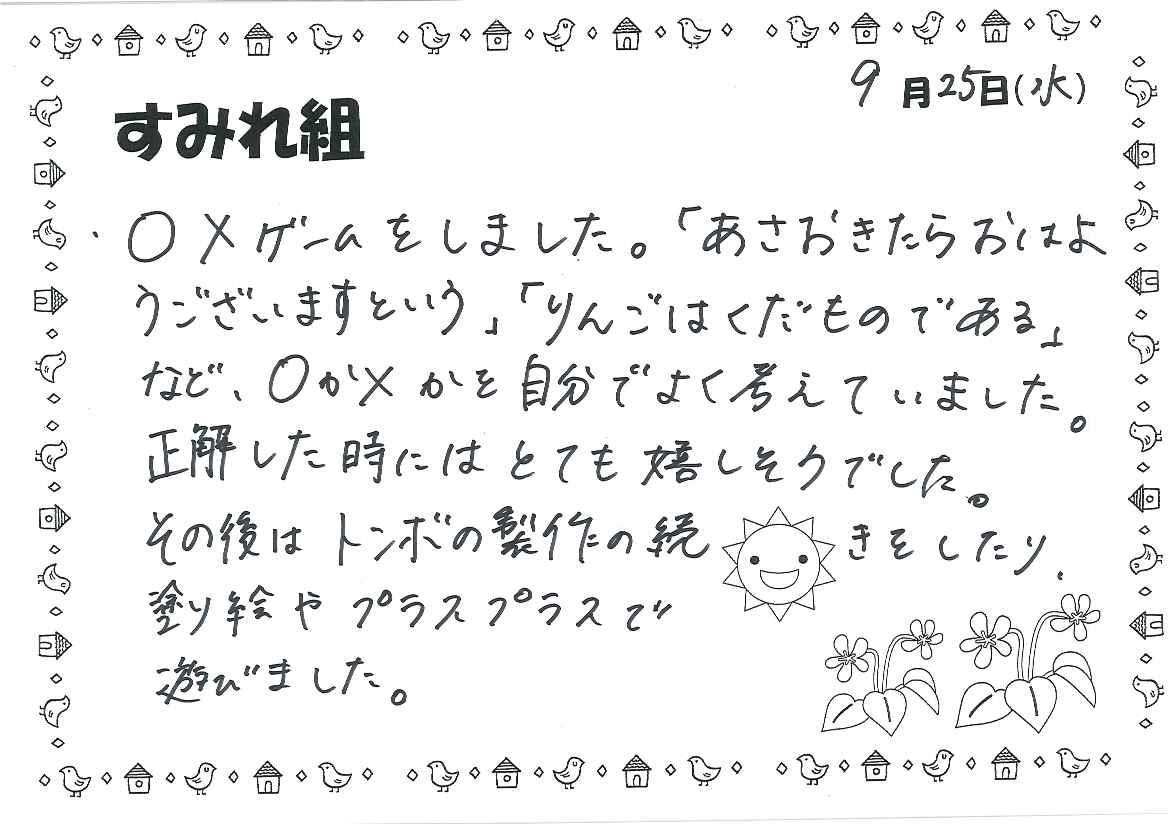 9月25日(水)
すみれ組
・〇×ゲームをしました。「あさおきたらおはよ
うございますという」「りんごはくだものである」
など、〇か×かを自分でよく考えていました。
正解した時にはとても嬉しそうでした。
その後はトンボの製作の続きをしたり、
塗り絵やプラスプラスで
遊びました。